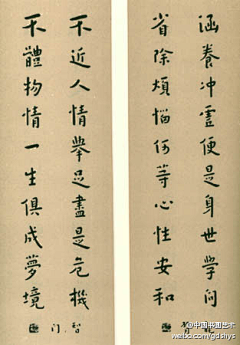 涵養冲虚便是身世學问
省除煩惱何等心性安和
不近人情舉足盡是危機
不體物情一生俱成夢境
@中国书画艺术
weibo.com/gdshys